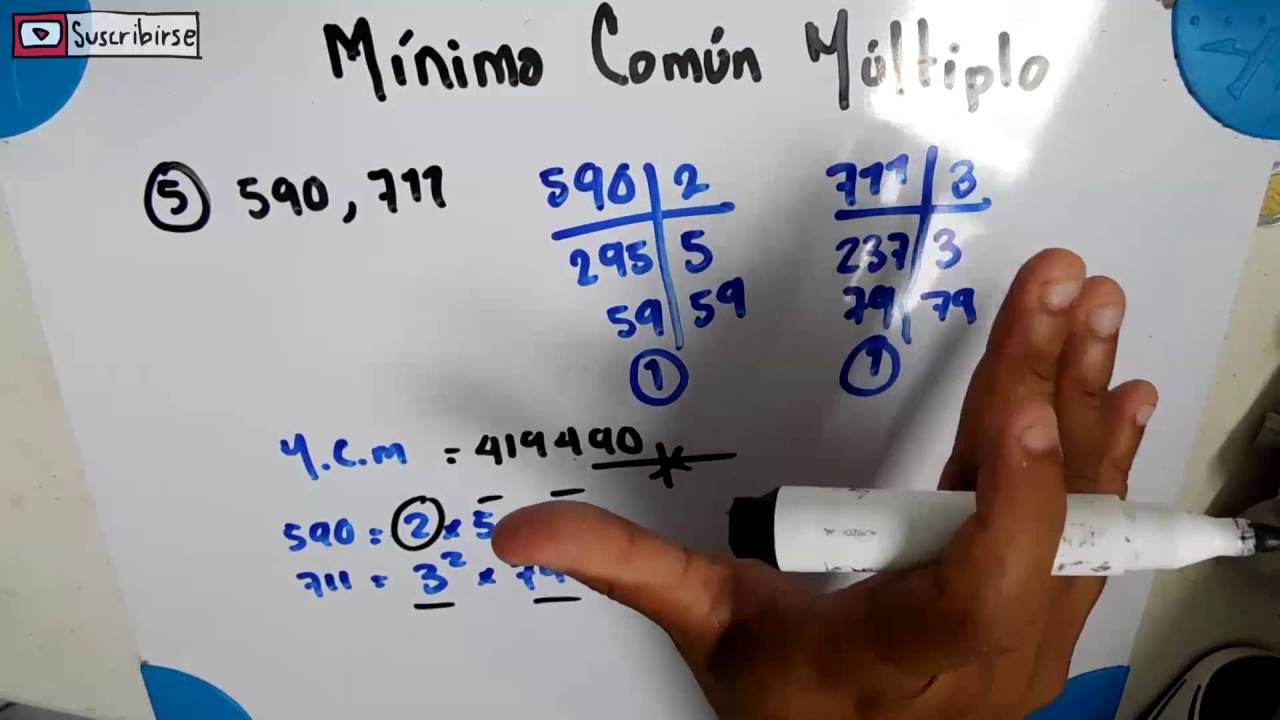 Suscribirse
Mínimo Común Múltiplo
5 590, 711
590 | 2
295 | 5
59 | 59
1
711 | 3
237 | 3
79 | 79
1
M.C.m = 419490
590 = 2 × 5
711 = 3² × 79